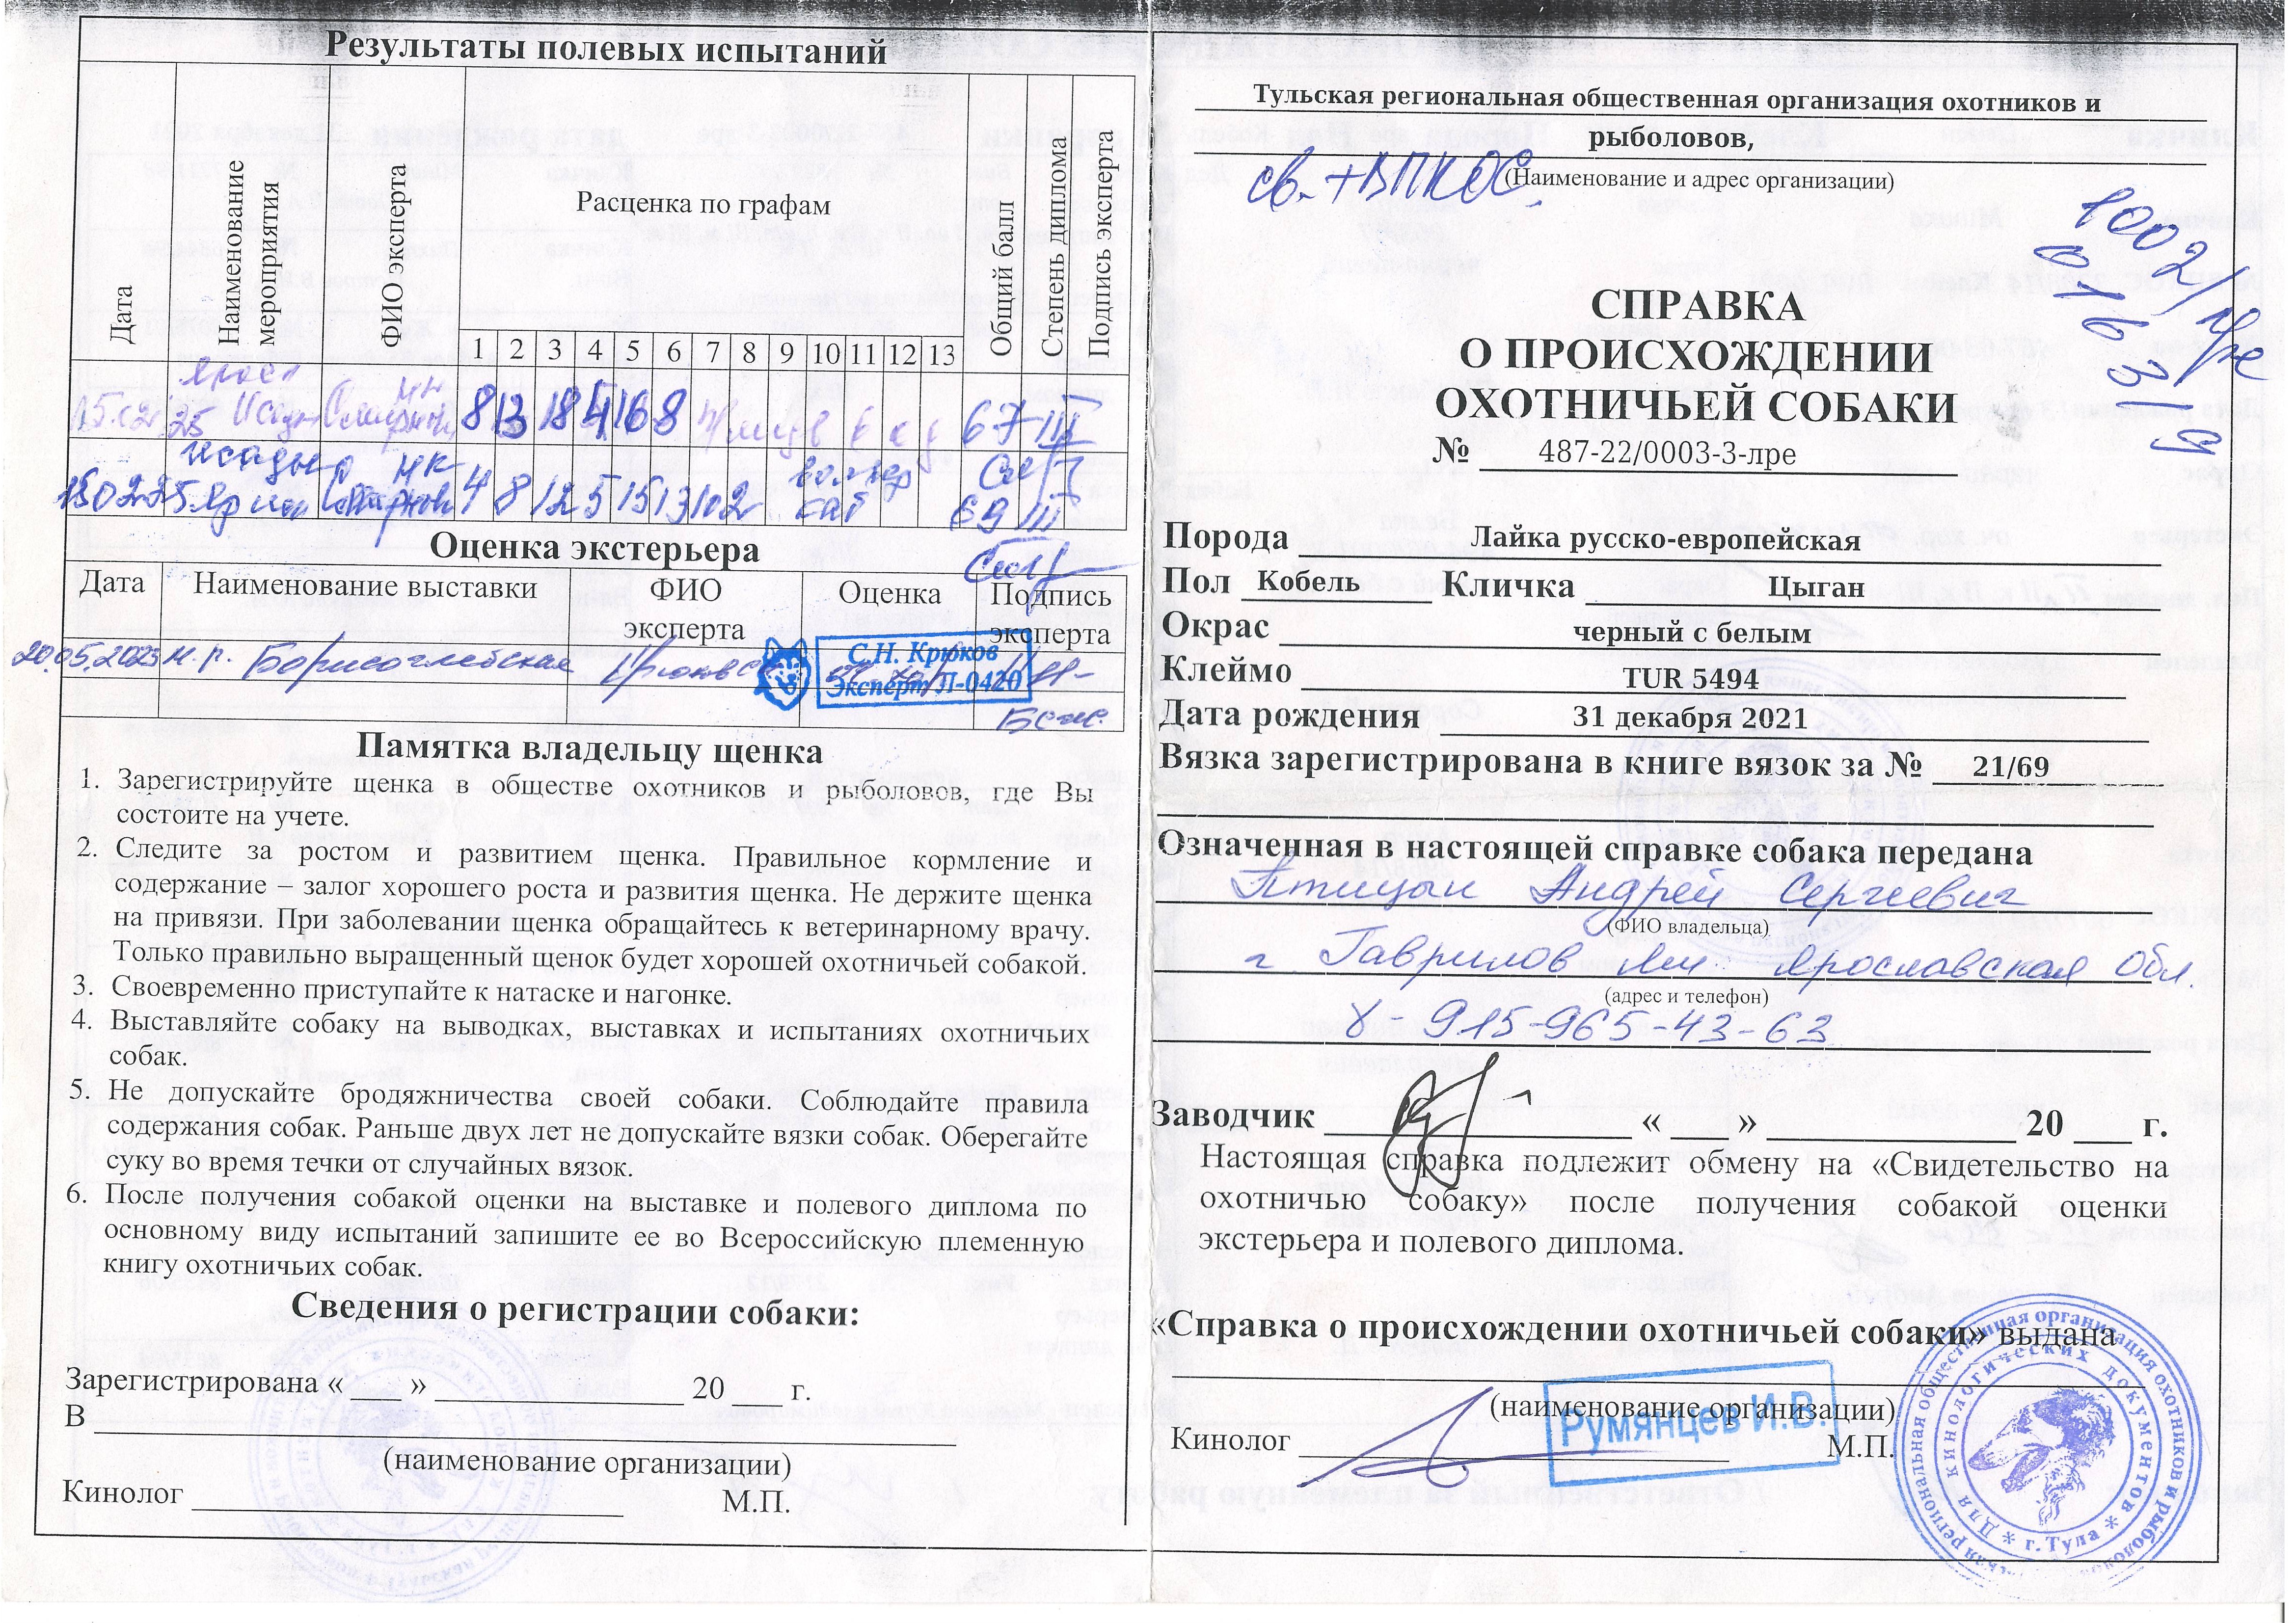 Результаты полевых испытаний
Дата
Наименование мероприятия
ФИО эксперта
Расценка по графам
Общий балл
Степень диплома
Подпись эксперта
1 2 3 4 5 6 7 8 9 10 11 12 13
25 8 13 18 4 16 8 67 III
4 8 12 5 15 13 10 2 69 III
Оценка экстерьера
Дата
Наименование выставки
ФИО эксперта
Оценка
Подпись эксперта
20.05.2023 м.р. Борисоглебская Крюков
С.Н. Крюков
Эксперт Л-0420
Памятка владельцу щенка
1. Зарегистрируйте щенка в обществе охотников и рыболовов, где Вы
состоите на учете.
2. Следите за ростом и развитием щенка. Правильное кормление и
содержание – залог хорошего роста и развития щенка. Не держите щенка
на привязи. При заболевании щенка обращайтесь к ветеринарному врачу.
Только правильно выращенный щенок будет хорошей охотничьей собакой.
3. Своевременно приступайте к натаске и нагонке.
4. Выставляйте собаку на выводках, выставках и испытаниях охотничьих
собак.
5. Не допускайте бродяжничества своей собаки. Соблюдайте правила
содержания собак. Раньше двух лет не допускайте вязки собак. Оберегайте
суку во время течки от случайных вязок.
6. После получения собакой оценки на выставке и полевого диплома по
основному виду испытаний запишите ее во Всероссийскую племенную
книгу охотничьих собак.
Сведения о регистрации собаки:
Зарегистрирована « ___ » ________________ 20 ___ г.
В
(наименование организации)
Кинолог
М.П.
Тульская региональная общественная организация охотников и
рыболовов,
(Наименование и адрес организации)
св. + ВПКОС.
1002/лре
0163/9
СПРАВКА
О ПРОИСХОЖДЕНИИ
ОХОТНИЧЬЕЙ СОБАКИ
№ 487-22/0003-3-лре
Порода Лайка русско-европейская
Пол Кобель Кличка Цыган
Окрас черный с белым
Клеймо TUR 5494
Дата рождения 31 декабря 2021
Вязка зарегистрирована в книге вязок за № 21/69
Означенная в настоящей справке собака передана
Птицын Андрей Сергеевич
(ФИО владельца)
г Гаврилов Ям Ярославская обл.
(адрес и телефон)
8-915-965-43-63
Заводчик ________________ « ___ » ________________ 20 ___ г.
Настоящая справка подлежит обмену на «Свидетельство на
охотничью собаку» после получения собакой оценки
экстерьера и полевого диплома.
«Справка о происхождении охотничьей собаки» выдана
(наименование организации)
Кинолог
Румянцев И.В.
М.П.
региональная общественная организация охотников и рыболовов
Для кинологических документов
* г. Тула *